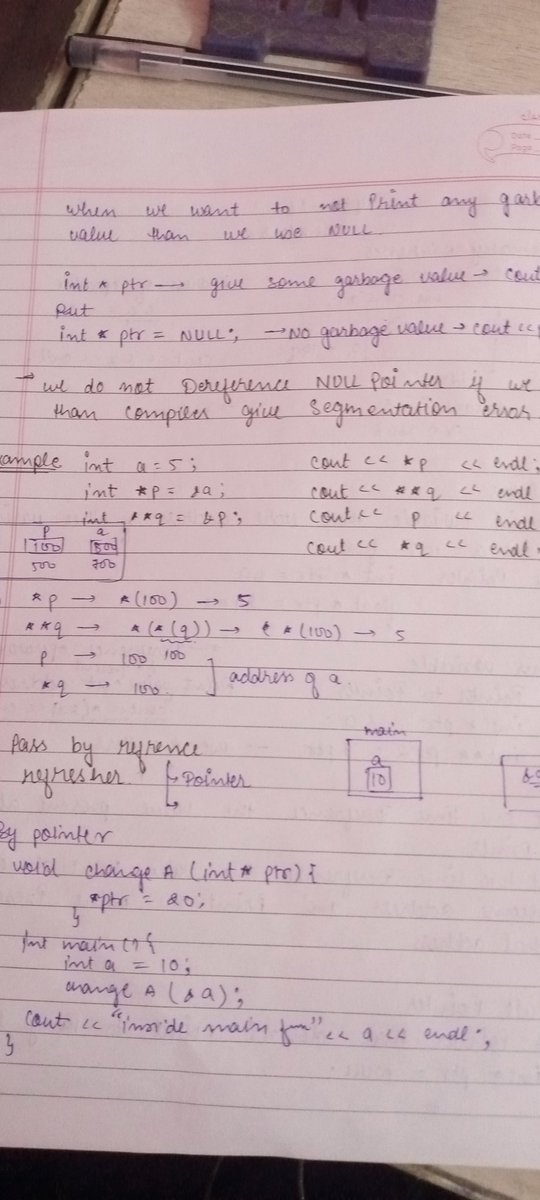 Date
Page
when we want to not Print any garb
value than we use NULL.
int * ptr → give some garbage value → cout
But
int * ptr = NULL; → No garbage value → cout <<
→ we do not Dereference NULL Pointer if we
than compiler give segmentation error
ample int a = 5; cout << *p << endl;
int *p = &a; cout << **q << endl
int **q = &p; cout << p << endl
cout << *q << endl.
p a
100 500
500 700
*p → *(100) → 5
**q → *(*(q)) → *(100) → 5
p → 100 100
*q → 100 ] address of a
Pass by refrence main
refresher. Pointer a
10
By pointer
void change A (int* ptr) {
*ptr = 20;
}
int main () {
int a = 10;
change A (&a);
cout << "inside main fun" << a << endl;
}